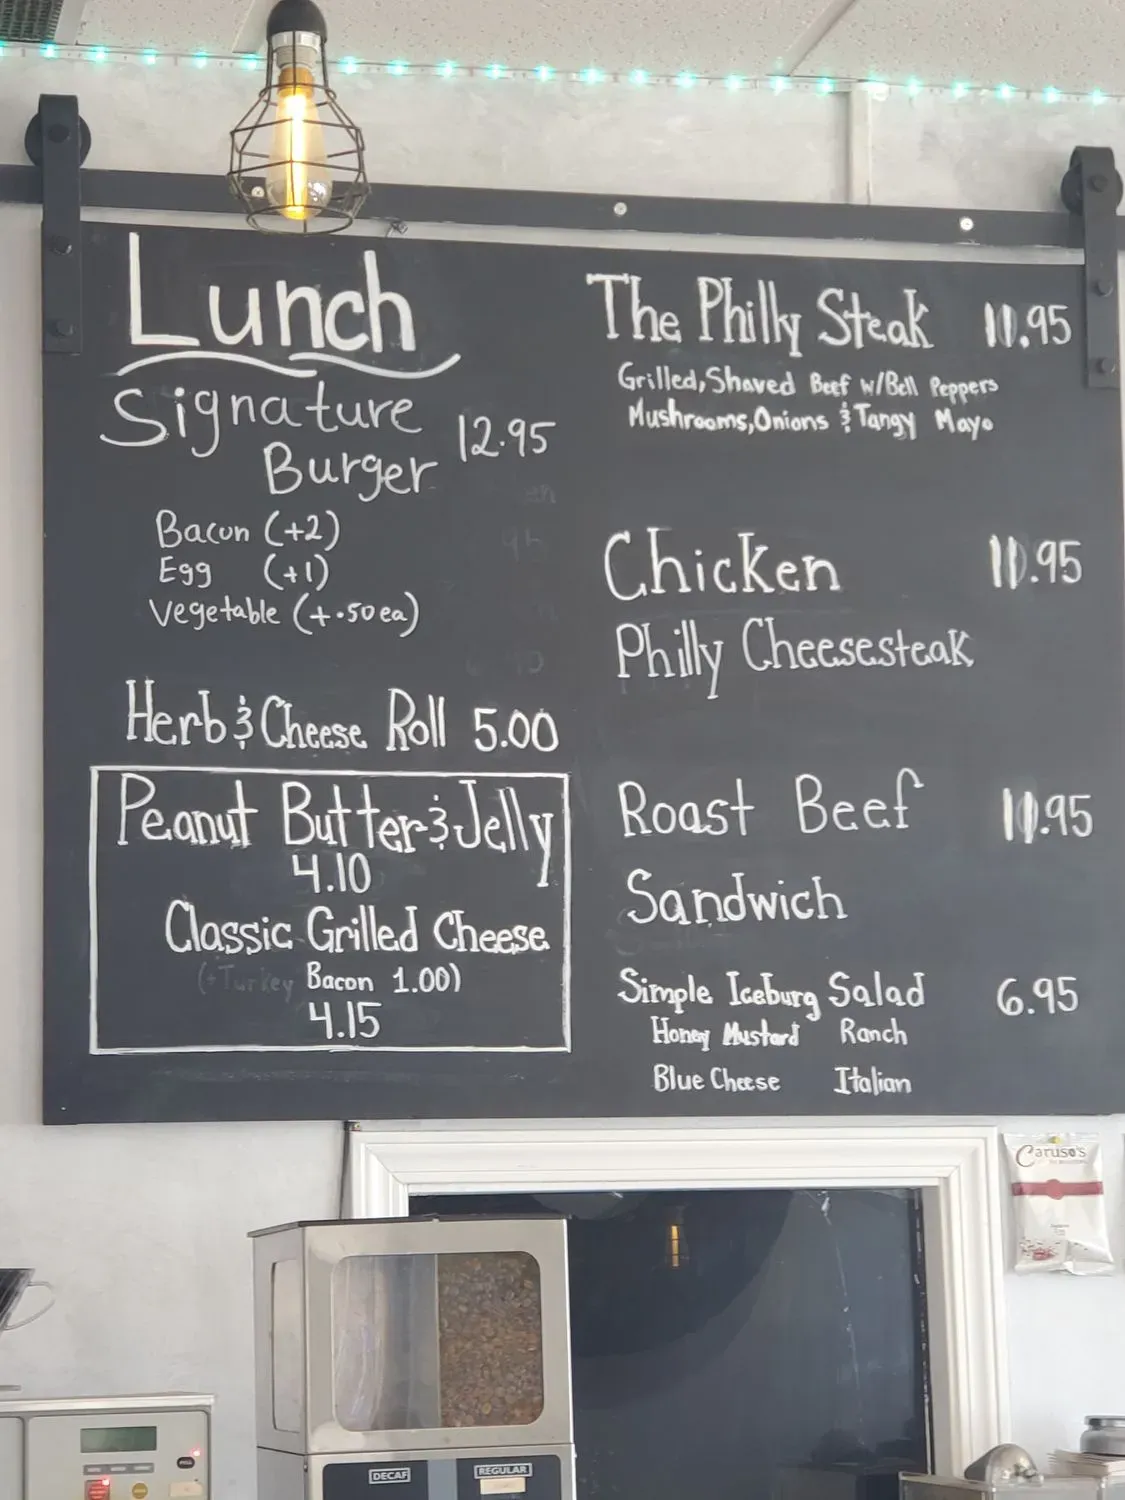 Lunch
Signature
Burger 12.95
Bacon (+2)
Egg (+1)
Vegetable (+.50 ea)
Herb & Cheese Roll 5.00
Peanut Butter & Jelly
4.10
Classic Grilled Cheese
(+Turkey Bacon 1.00)
4.15
The Philly Steak 11.95
Grilled, Shaved Beef w/Bell Peppers
Mushrooms, Onions & Tangy Mayo
Chicken 11.95
Philly Cheesesteak
Roast Beef 11.95
Sandwich
Simple Iceburg Salad 6.95
Honey Mustard Ranch
Blue Cheese Italian
Caruso's
DECAF REGULAR